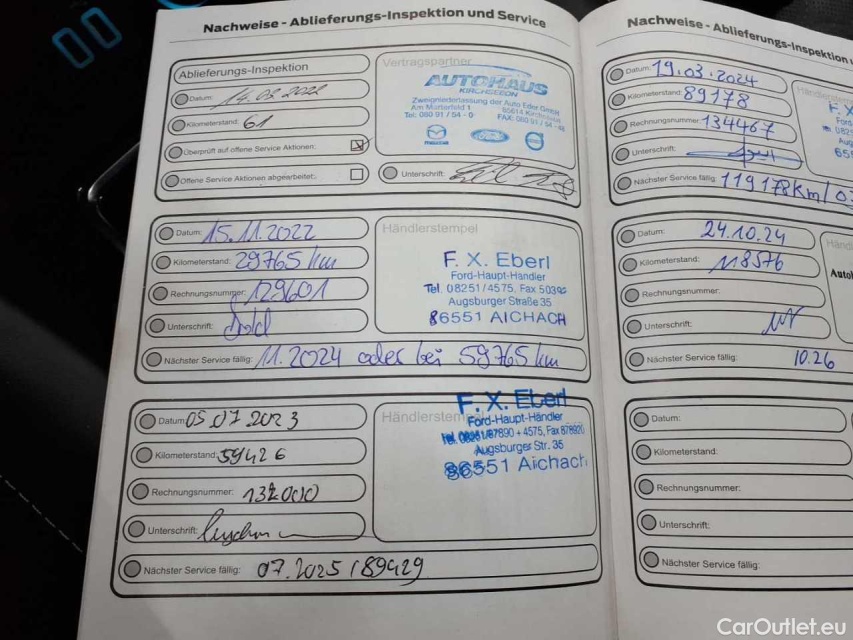 Nachweise - Ablieferungs-Inspektion und Service
Ablieferungs-Inspektion
Datum: 14.03.2022
Kilometerstand: 61
Überprüft auf offene Service Aktionen:
Offene Service Aktionen abgearbeitet:
Vertragspartner
AUTOHAUS
KIRCHSEEON
Zweigniederlassung der Auto Eder GmbH
Am Münterfeld 1 85614 Kirchseeon
Tel: 080 91 / 54 - 0 FAX: 080 91 / 54 - 48
mazda Ford
Unterschrift:
Datum: 15.11.2022
Kilometerstand: 29765 km
Rechnungsnummer: 129601
Unterschrift:
Händlerstempel
F. X. Eberl
Ford-Haupt-Händler
Tel. 08251/4575, Fax 50392
Augsburger Straße 35
86551 AICHACH
Nächster Service fällig: 11.2024 oder bei 59765 km
Datum: 05.07.2023
Kilometerstand: 59426
Rechnungsnummer: 132000
Unterschrift:
Händlerstempel
F. X. Eberl
Ford-Haupt-Händler
Tel. 08251/87890 + 4575, Fax 878920
Augsburger Str. 35
86551 Aichach
Nächster Service fällig: 07.2025 / 89429
Nachweise - Ablieferungs-Inspektion
Datum: 19.03.2024
Kilometerstand: 89178
Rechnungsnummer: 134467
Unterschrift:
Nächster Service fällig: 119178 Km/
F. X
Ford
Datum: 24.10.24
Kilometerstand: 118576
Rechnungsnummer:
Unterschrift:
Nächster Service fällig: 10.26
Datum:
Kilometerstand:
Rechnungsnummer:
Unterschrift:
Nächster Service fällig:
CarOutlet.eu